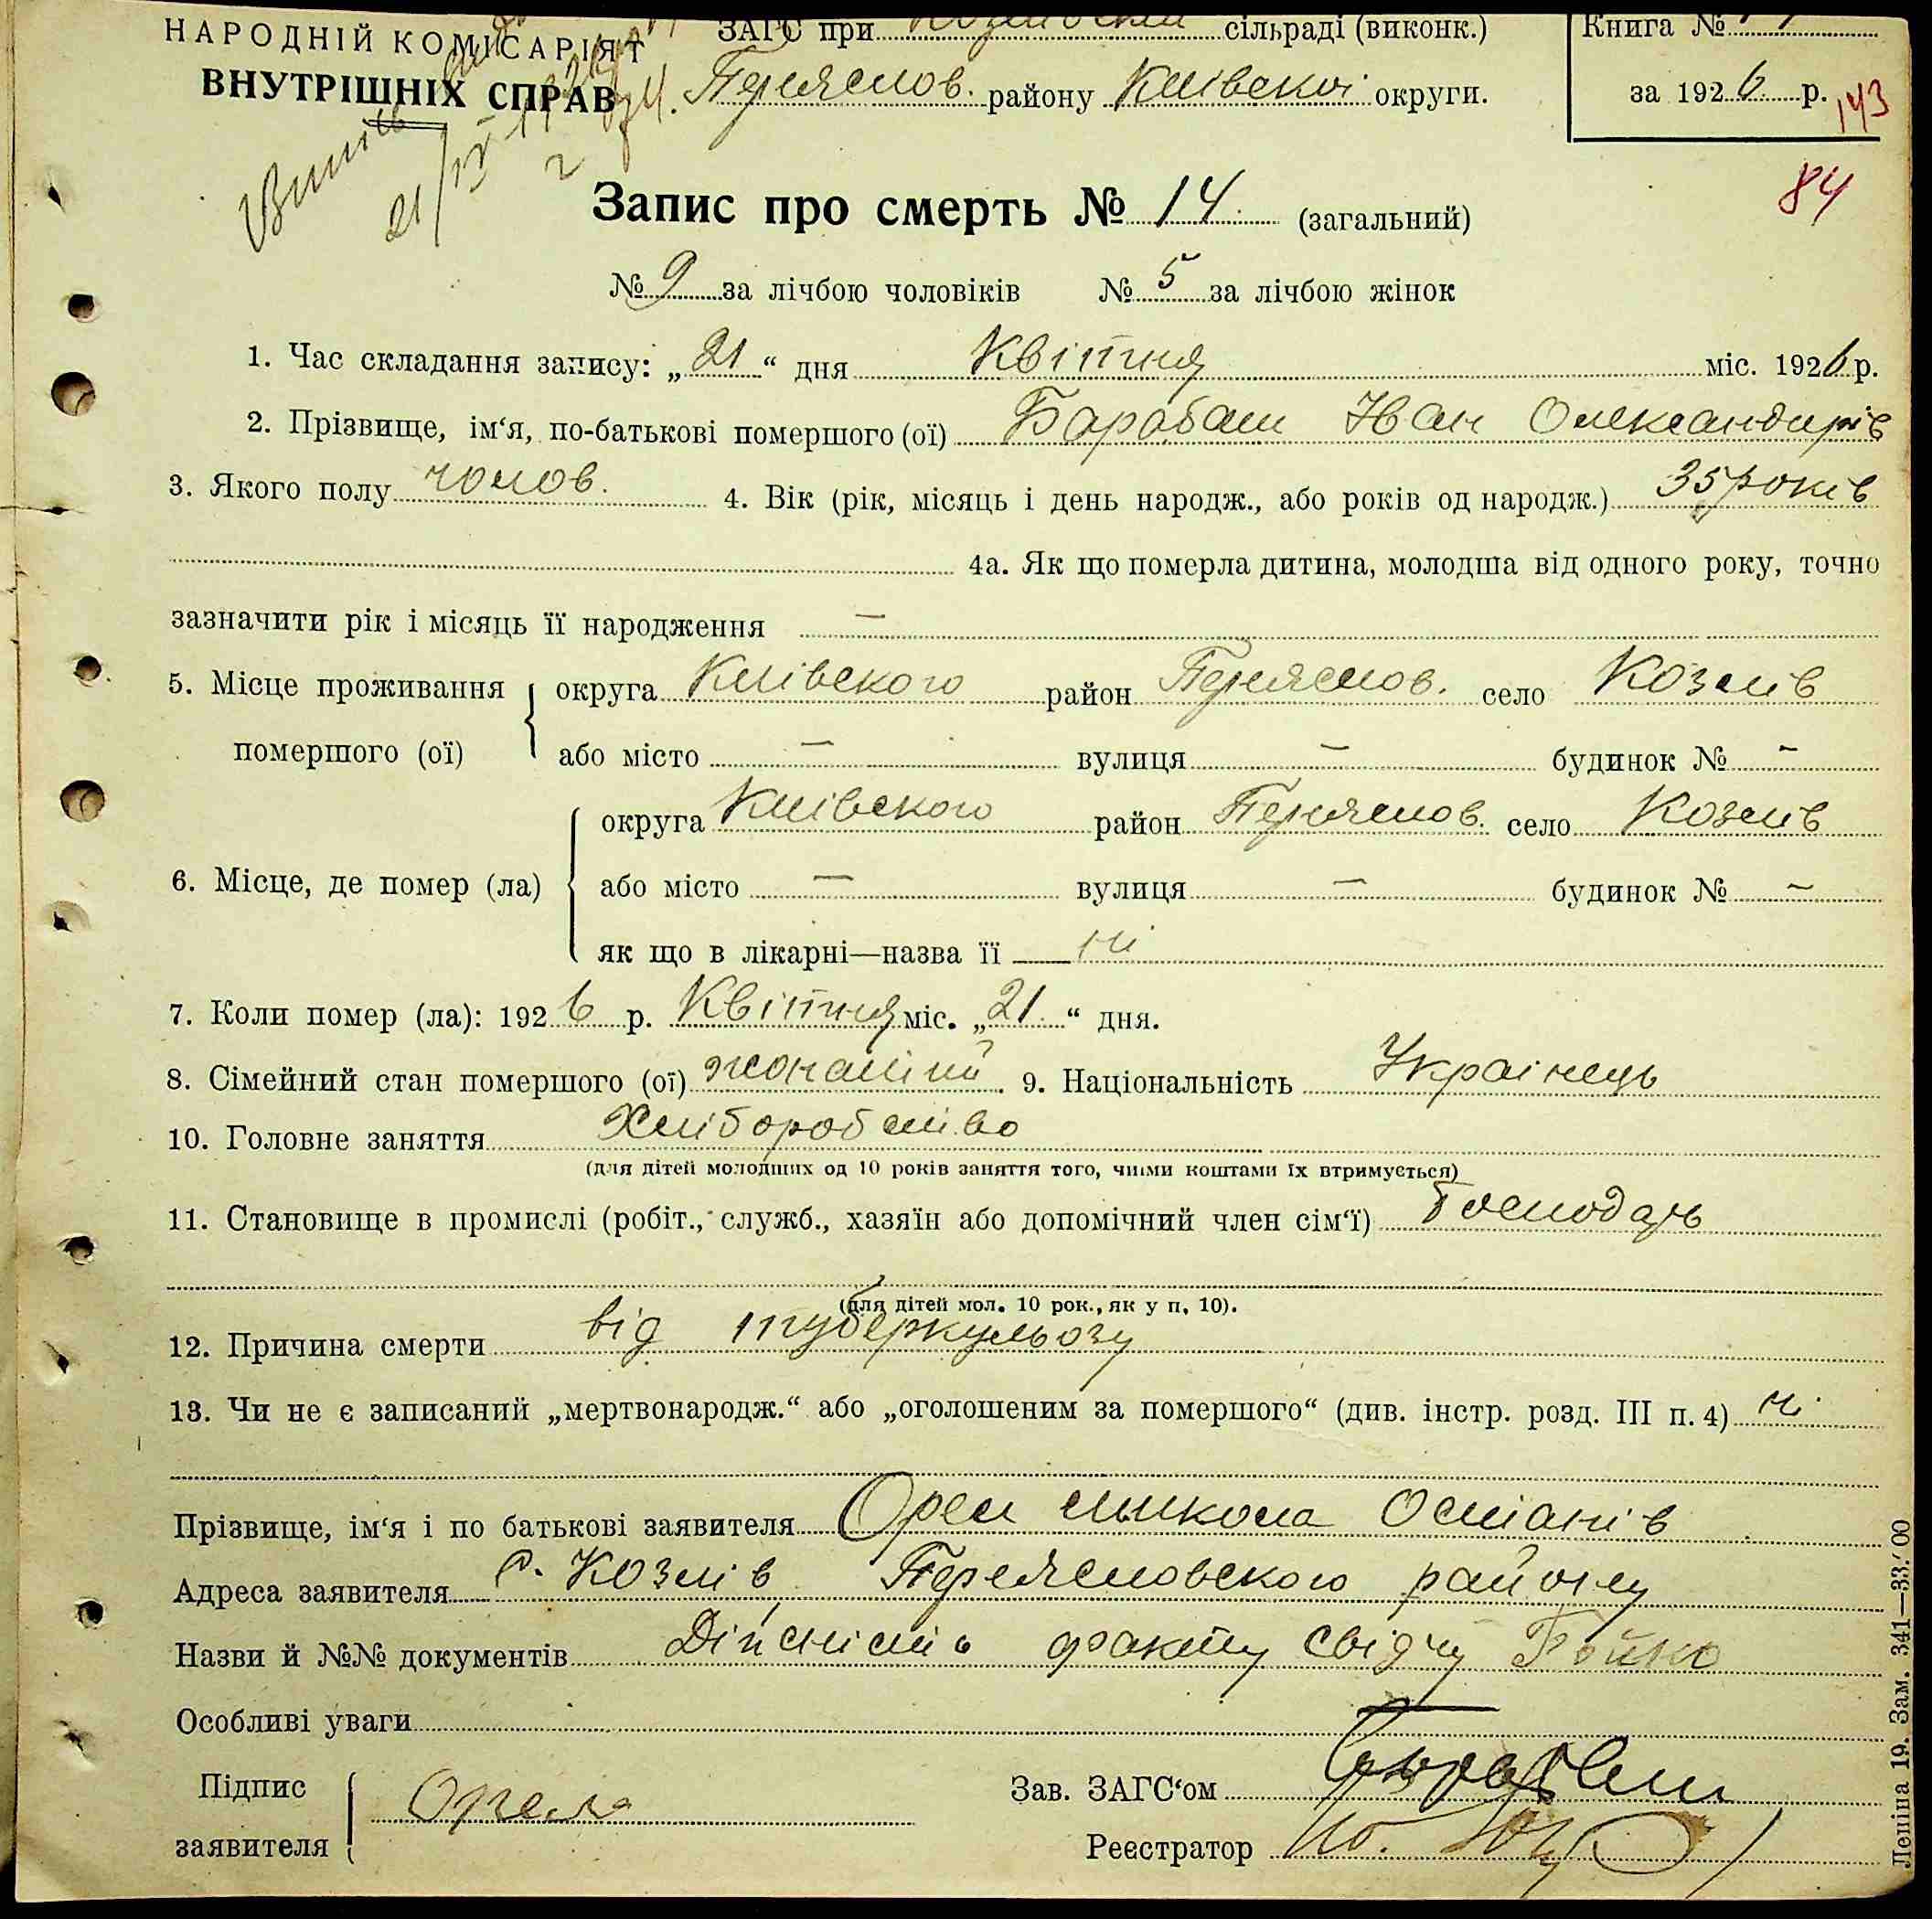 НАРОДНІЙ КОМІСАРІЯТ
ВНУТРІШНІХ СПРАВ
ЗАГС при Козлівській сільраді (виконк.)
Переяслов. району Київської округи.
Книга №
за 1926 р.
143
84
21/IV
Запис про смерть № 14 (загальний)
№ 9 за лічбою чоловіків № 5 за лічбою жінок
1. Час складання запису: „21“ дня Квітня міс. 1926 р.
2. Прізвище, ім‘я, по-батькові помершого (ої) Барабаш Іван Олександрів
3. Якого полу чолов. 4. Вік (рік, місяць і день народж., або років од народж.) 35 років
4а. Як що померла дитина, молодша від одного року, точно
зазначити рік і місяць її народження —
5. Місце проживання помершого (ої) округа Київского район Переяслов. село Козлів
або місто — вулиця — будинок № —
6. Місце, де помер (ла) округа Київского район Переяслов. село Козлів
або місто — вулиця — будинок № —
як що в лікарні—назва її ні
7. Коли помер (ла): 1926 р. Квітня міс. „21“ дня.
8. Сімейний стан помершого (ої) жонатий. 9. Національність Українець
10. Головне заняття Хліборобство
(для дітей молодших од 10 років заняття того, чиїми коштами їх втримується)
11. Становище в промислі (робіт., служб., хазяїн або допомічний член сім‘ї) Господарь
(для дітей мол. 10 рок., як у п. 10).
12. Причина смерти від туберкульозу
13. Чи не є записаний „мертвонародж.“ або „оголошеним за помершого“ (див. інстр. розд. III п. 4) ні
Прізвище, ім‘я і по батькові заявителя Орел Микола Остапів
Адреса заявителя с. Козлів Переясловского району
Назви й №№ документів Дійсність факту свідчу Бойко
Особливі уваги
Підпис заявителя Орел
Зав. ЗАГС‘ом
Реєстратор
Леніна 19. Зам. 341—33.‘00